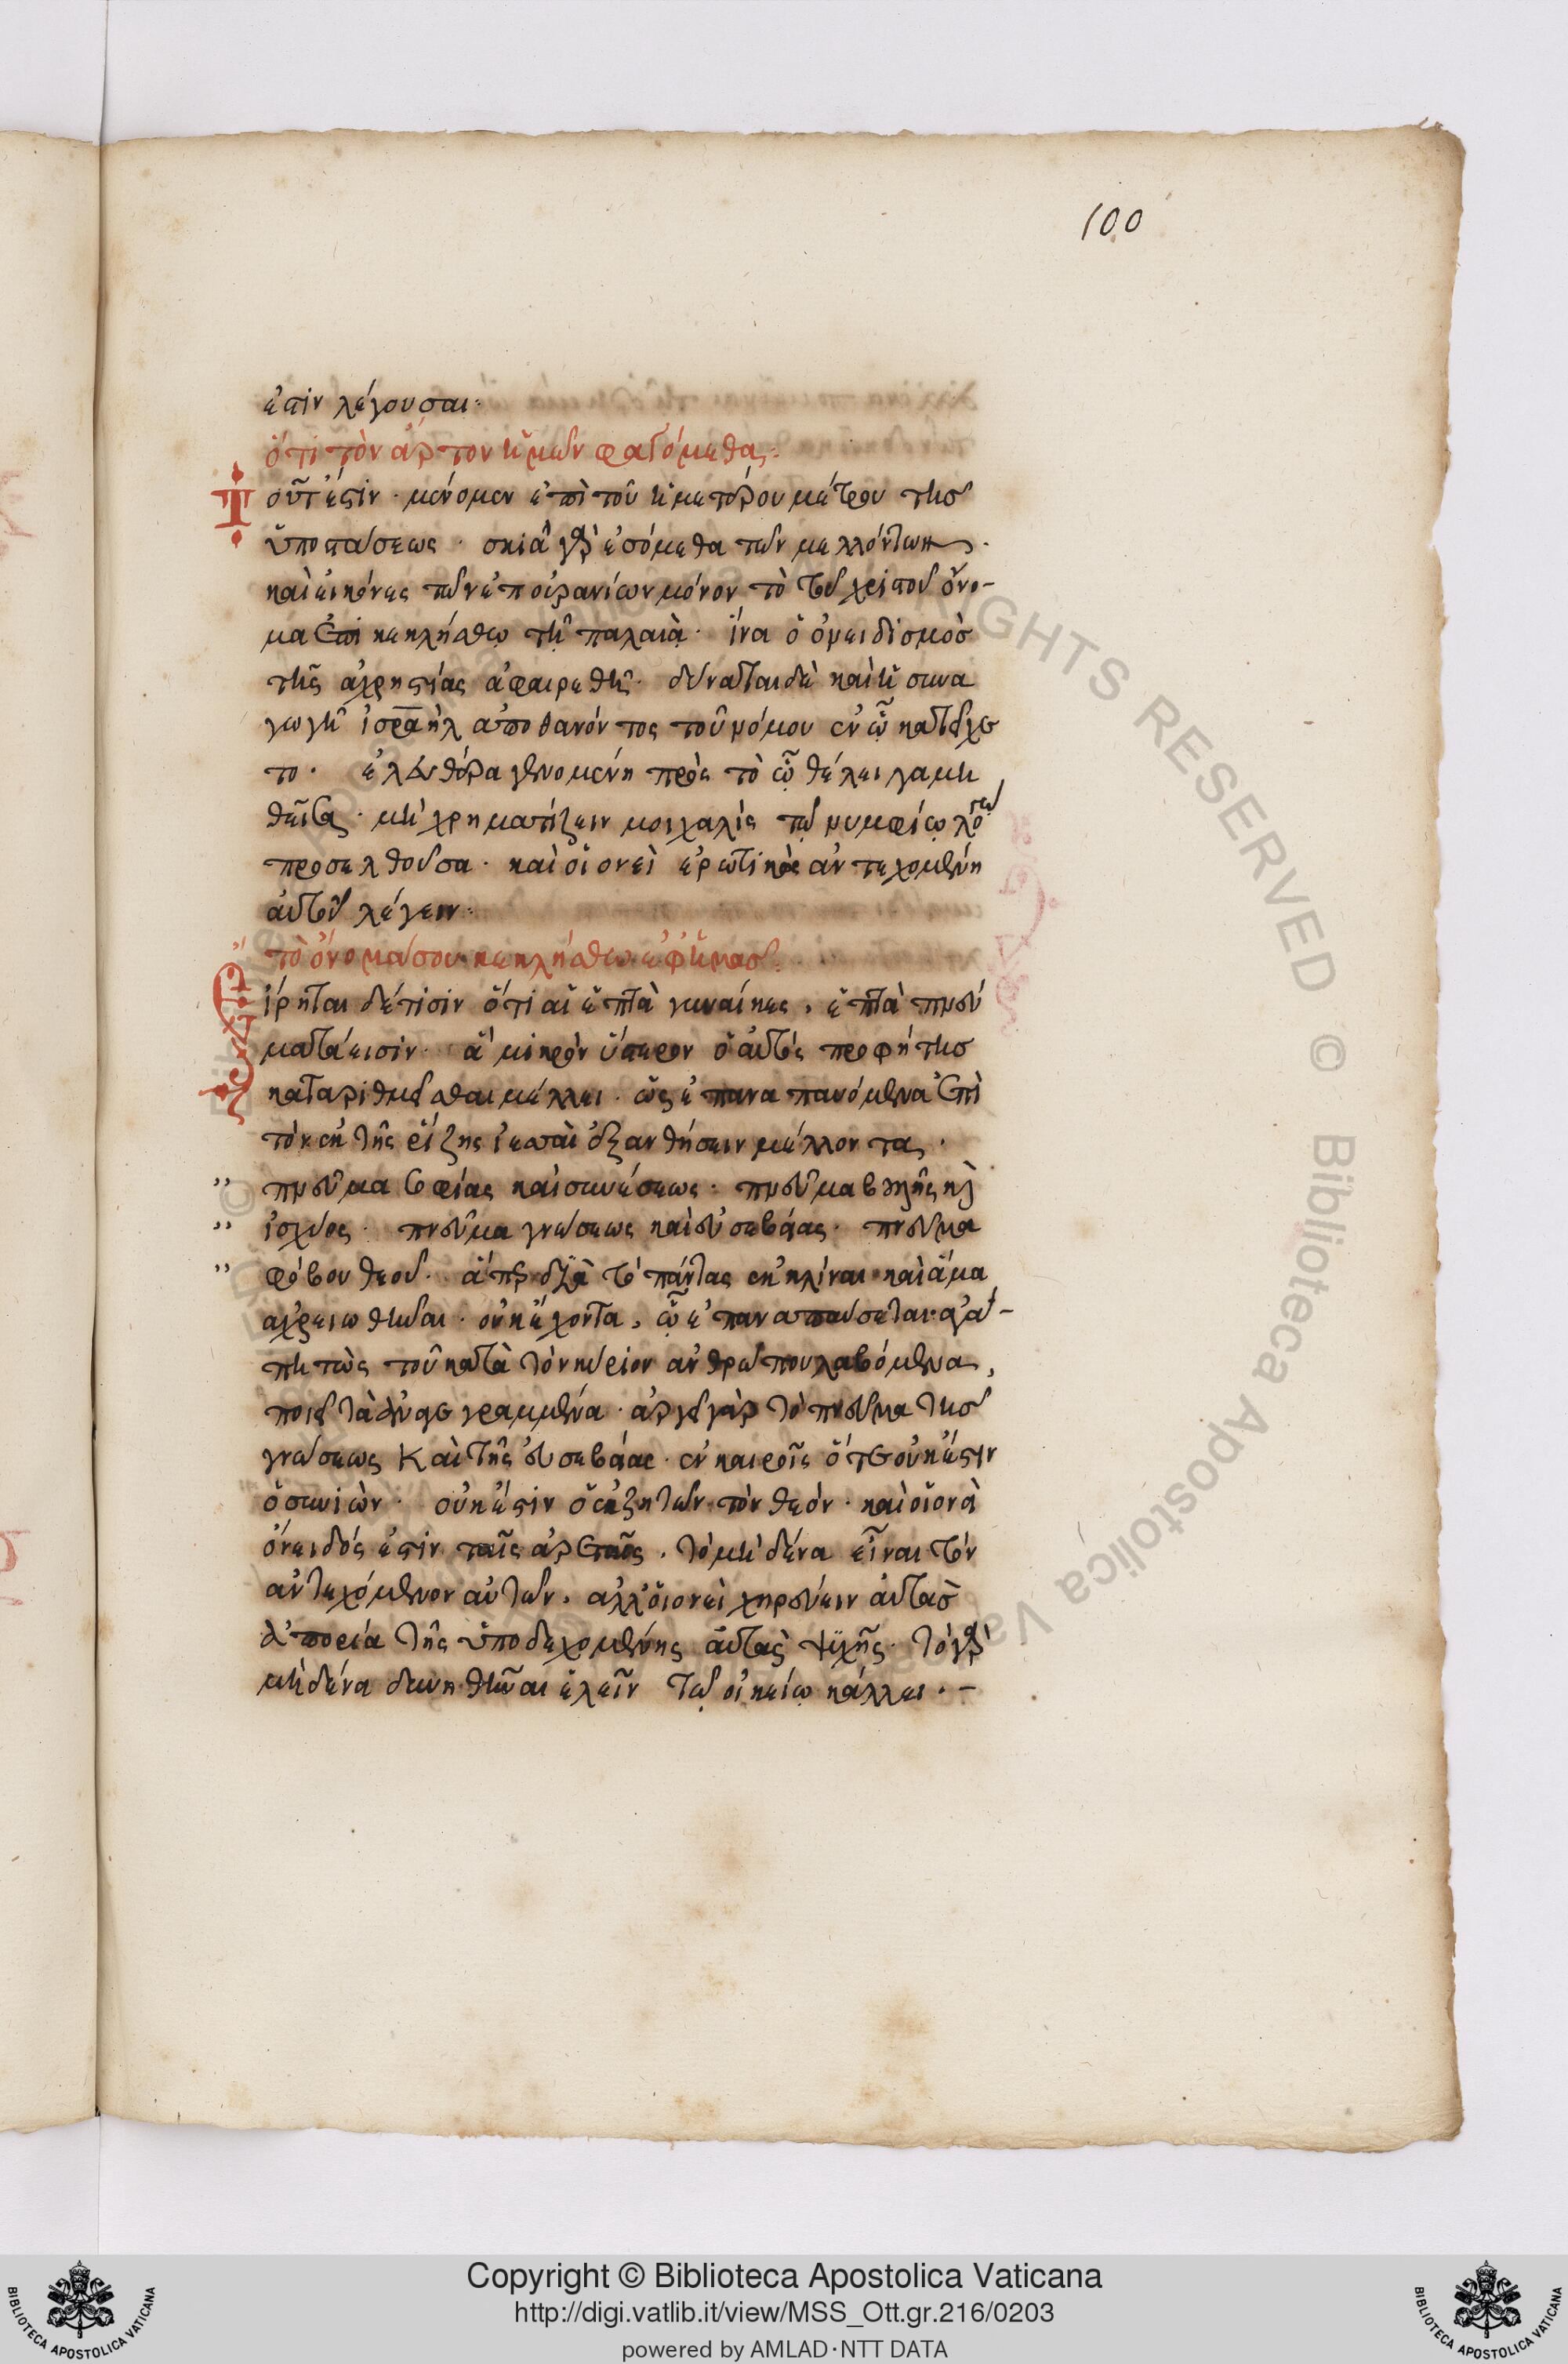 100
ἐστὶν λέγουσαι·
ὅτι τὸν ἄρτον ἡμῶν φαγόμεθα·
Τουτέστιν· μένομεν ἐπὶ τοῦ ἡμετέρου μέτρου τῆς
ὑποστάσεως· σκιὰ γὰρ ἐσόμεθα τῶν μελλόντων·
καὶ εἰκόνες τῶν ἐπουρανίων μόνον τὸ τοῦ χριστοῦ ὄνο-
μα ἐπικεκλήσθω τῇ παλαιᾷ· ἵνα ὁ ὀνειδισμὸς
τῆς ἀχρηστίας ἀφαιρεθῇ· δύναται δὲ καὶ ἡ συνα
γωγὴ ἰσραὴλ ἀποθανόντος τοῦ νόμου ἐν ᾧ κατείχε
το· ἐλευθέρα γενομένη πρὸς τὸ ᾧ θέλει γαμη
θεῖσα· μὴ χρηματίζειν μοιχαλὶς τῷ νυμφίῳ λόγῳ
προσελθοῦσα· καὶ οἱονεὶ ἐρωτικῶς ἀντεχομένη
αὐτοῦ λέγειν·
τὸ ὄνομά σου κεκλήσθω ἐφ' ἡμᾶς·
Εἴρηται δέ τισιν ὅτι αἱ ἑπτὰ γυναῖκες, ἑπτὰ πνεύ
ματά εἰσιν· ἃ μικρὸν ὕστερον ὁ αὐτὸς προφήτης
καταριθμεῖσθαι μέλλει· ὡς ἐπαναπαυόμενα ἐπὶ
τὸν ἐκ τῆς ῥίζης ἰεσσαὶ ἐξανθήσειν μέλλοντα·
,, πνεῦμα σοφίας καὶ συνέσεως· πνεῦμα βουλῆς καὶ
,, ἰσχύος· πνεῦμα γνώσεως καὶ εὐσεβείας· πνεῦμα
,, φόβου θεοῦ· ἅπερ διὰ τὸ πάντας ἐκκλῖναι καὶ ἅμα
ἀχρειωθῆναι· οὐκ ἔχοντα, ᾧ ἐπαναπαύσεται· ἀγα-
πητῶς τοῦ κατὰ τὸν κύριον ἀνθρώπου λαβόμενα,
ποιεῖ τὰ ἀναγεγραμμένα· ἀργεῖ γὰρ τὸ πνεῦμα τῆς
γνώσεως καὶ τῆς εὐσεβείας· ἐν καιροῖς ὅτε οὐκ ἔστιν
ὁ συνιών· οὐκ ἔστιν ὁ ἐκζητῶν τὸν θεόν· καὶ οἱονεὶ
ὄνειδός ἐστιν ταῖς ἀρεταῖς, τὸ μηδένα εἶναι τὸν
ἀντεχόμενον αὐτῶν, ἀλλ' οἱονεὶ χηρεύειν αὐτὰς
ἀπορίᾳ τῆς ὑποδεχομένης αὐτὰς ψυχῆς· τὸ γὰρ
μηδένα δυνηθῆναι ἑλεῖν τῷ οἰκείῳ κάλλει·-
Copyright © Biblioteca Apostolica Vaticana
http://digi.vatlib.it/view/MSS_Ott.gr.216/0203
powered by AMLAD·NTT DATA